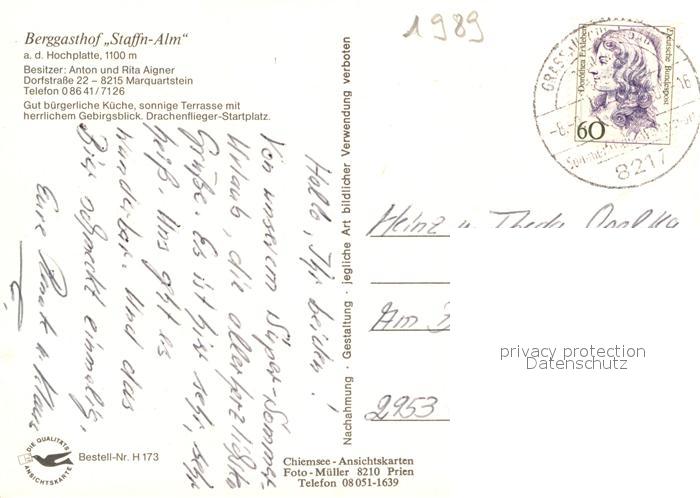 1989
Berggasthof „Staffn-Alm"
a. d. Hochplatte, 1100 m
Besitzer: Anton und Rita Aigner
Dorfstraße 22 – 8215 Marquartstein
Telefon 0 86 41 / 7126
Gut bürgerliche Küche, sonnige Terrasse mit
herrlichem Gebirgsblick. Drachenflieger-Startplatz.
Hallo, Ihr beiden!
Von unserem Super-Sommer-
Urlaub, die allerherzlichsten
Grüße. Es ist hier sehr, sehr
heiß. Uns geht es
wunderbar. Und das
Bier schmeckt einmalig.
Eure u. Klaus
Nachahmung · Gestaltung · jegliche Art bildlicher Verwendung verboten
Dorothea Erxleben
Deutsche Bundespost
60
8217
Heinz u.
Am
2953
privacy protection
Datenschutz
DIE QUALITÄTS
ANSICHTSKARTE
Bestell-Nr. H 173
Chiemsee - Ansichtskarten
Foto - Müller 8210 Prien
Telefon 08 051-1639